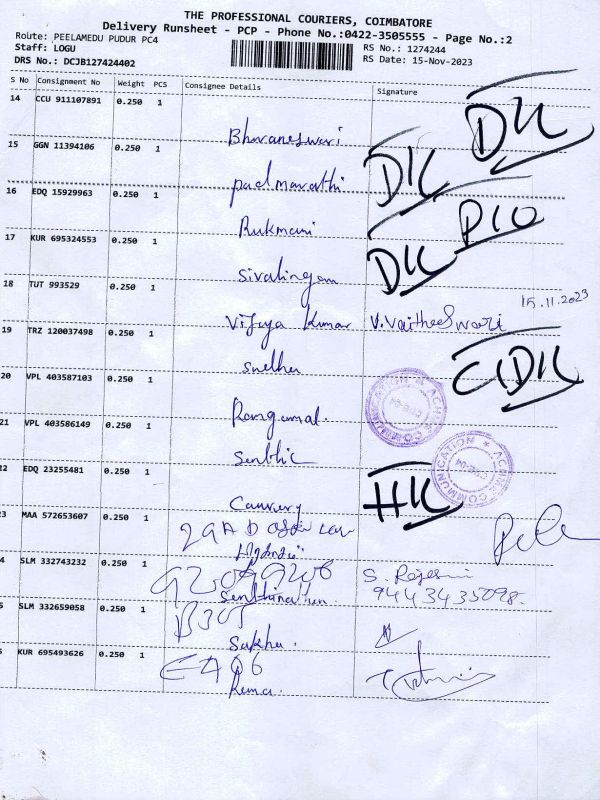 THE PROFESSIONAL COURIERS, COIMBATORE
Delivery Runsheet - PCP - Phone No.:0422-3505555 - Page No.:2
Route: PEELAMEDU PUDUR PC4
RS No.: 1274244
Staff: LOGU
RS Date: 15-Nov-2023
DRS No.: DCJB127424402
S No Consignment No Weight PCS Consignee Details Signature
14 CCU 911107891 0.250 1
Bhuvaneswari DK
15 GGN 11394106 0.250 1
padmavathi DK
16 EDQ 15929963 0.250 1
Rukmani PIO
17 KUR 695324553 0.250 1
Sivalingam DK
18 TUT 993529 0.250 1
15.11.2023
Vijaya Kumar V. Vaitheeswari
19 TRZ 120037498 0.250 1
Sudha CDK
20 VPL 403587103 0.250 1
Rangamal. ACME COMMUNICATION
21 VPL 403586149 0.250 1
Senthil ACME COMMUNICATION
22 EDQ 23255481 0.250 1
Cauvery HK
3 MAA 572653607 0.250 1
29A D
4 SLM 332743232 0.250 1
Senthinathan S. Rajesw
9443435098.
5 SLM 332659058 0.250 1
B305
Sakhu.
KUR 695493626 0.250 1
E406
Rema.